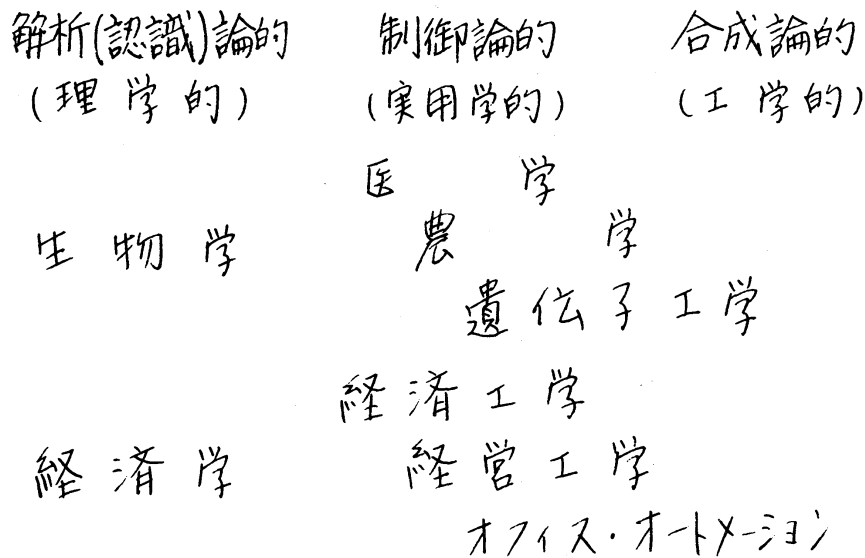 解析(認識)論的 制御論的 合成論的
(理学的) (実用学的) (工学的)
医学
生物学 農学
遺伝子工学
経済工学
経済学 経営工学
オフィス・オートメーション